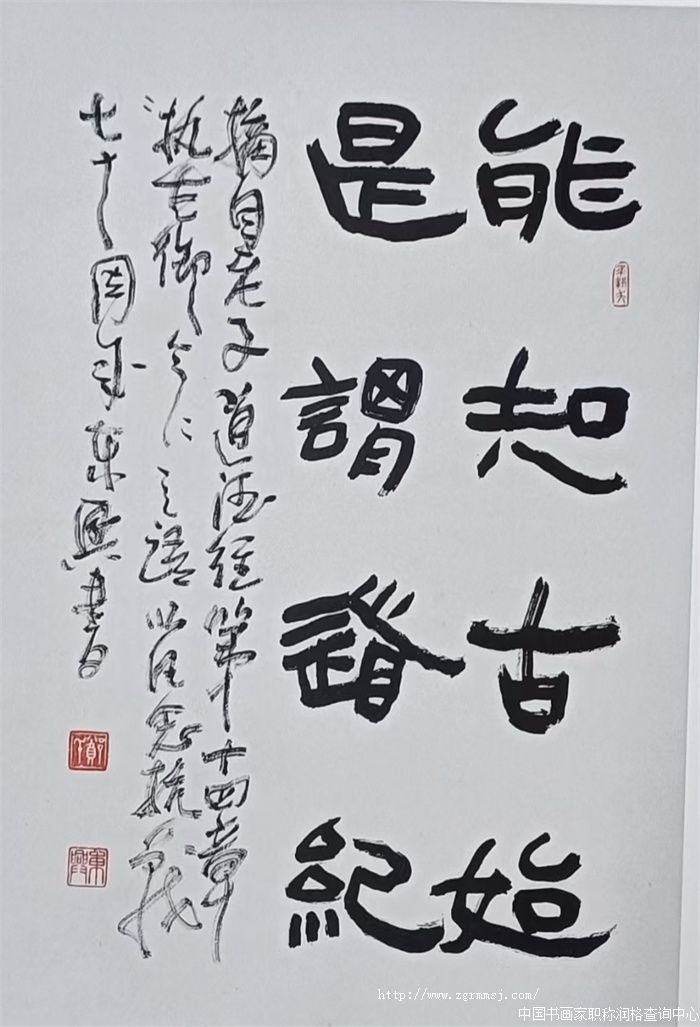 能知古始
是謂道紀
摘自老子道德经第十四章
"执古御今"之語以纪念抗战
七十周年东書
http://www.zgrmmsj.com/
中国书画家职称润格查询中心